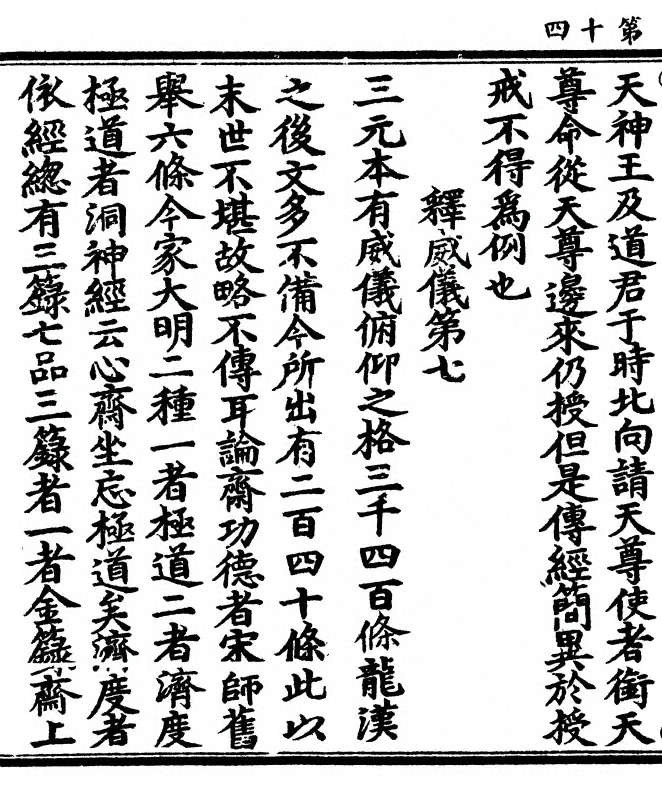 第十四
天神王及道君于時比向請天尊使者銜天
尊命從天尊邊來仍授但是傳經簡異於授
戒不得爲例也
釋威儀第七
三元本有威儀俯仰之格三千四百條龍漢
之後文多不備今所出有二百四十條此以
末世不堪故略不傳耳論齋功德者宋師舊
舉六條今家大明二種一者極道二者濟度
極道者洞神經云心齋坐忘極道矣濟度者
依經總有三籙七品三籙者一者金籙齋上